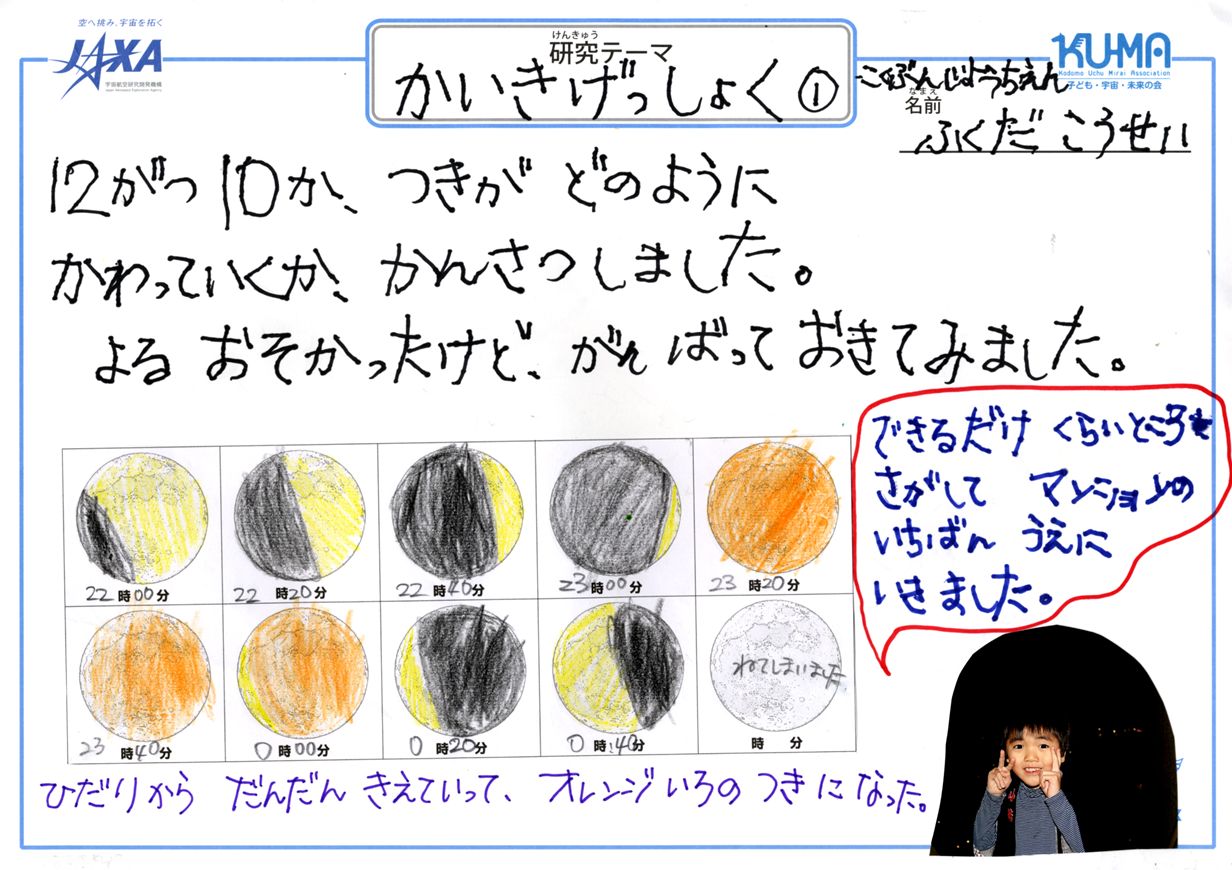 空へ挑み、宇宙を拓く
JAXA
宇宙航空研究開発機構
Japan Aerospace Exploration Agency
けんきゅう
研究テーマ
かいきげっしょく①
KU-MA
Kodomo Uchu Mirai Association
子ども・宇宙・未来の会
こくぶんじようちえん
なまえ
名前
ふくだ こうせい
12がつ10か、つきが どのように
かわっていくか、かんさつしました。
よる おそかったけど、がんばって おきてみました。
できるだけ くらいところを
さがして マンションの
いちばん うえに
いきました。
22時00分 22時20分 22時40分 23時00分 23時20分
ねてしまいました
23時40分 0時00分 0時20分 0時40分 時 分
ひだりから だんだん きえていって、オレンジいろの つきになった。